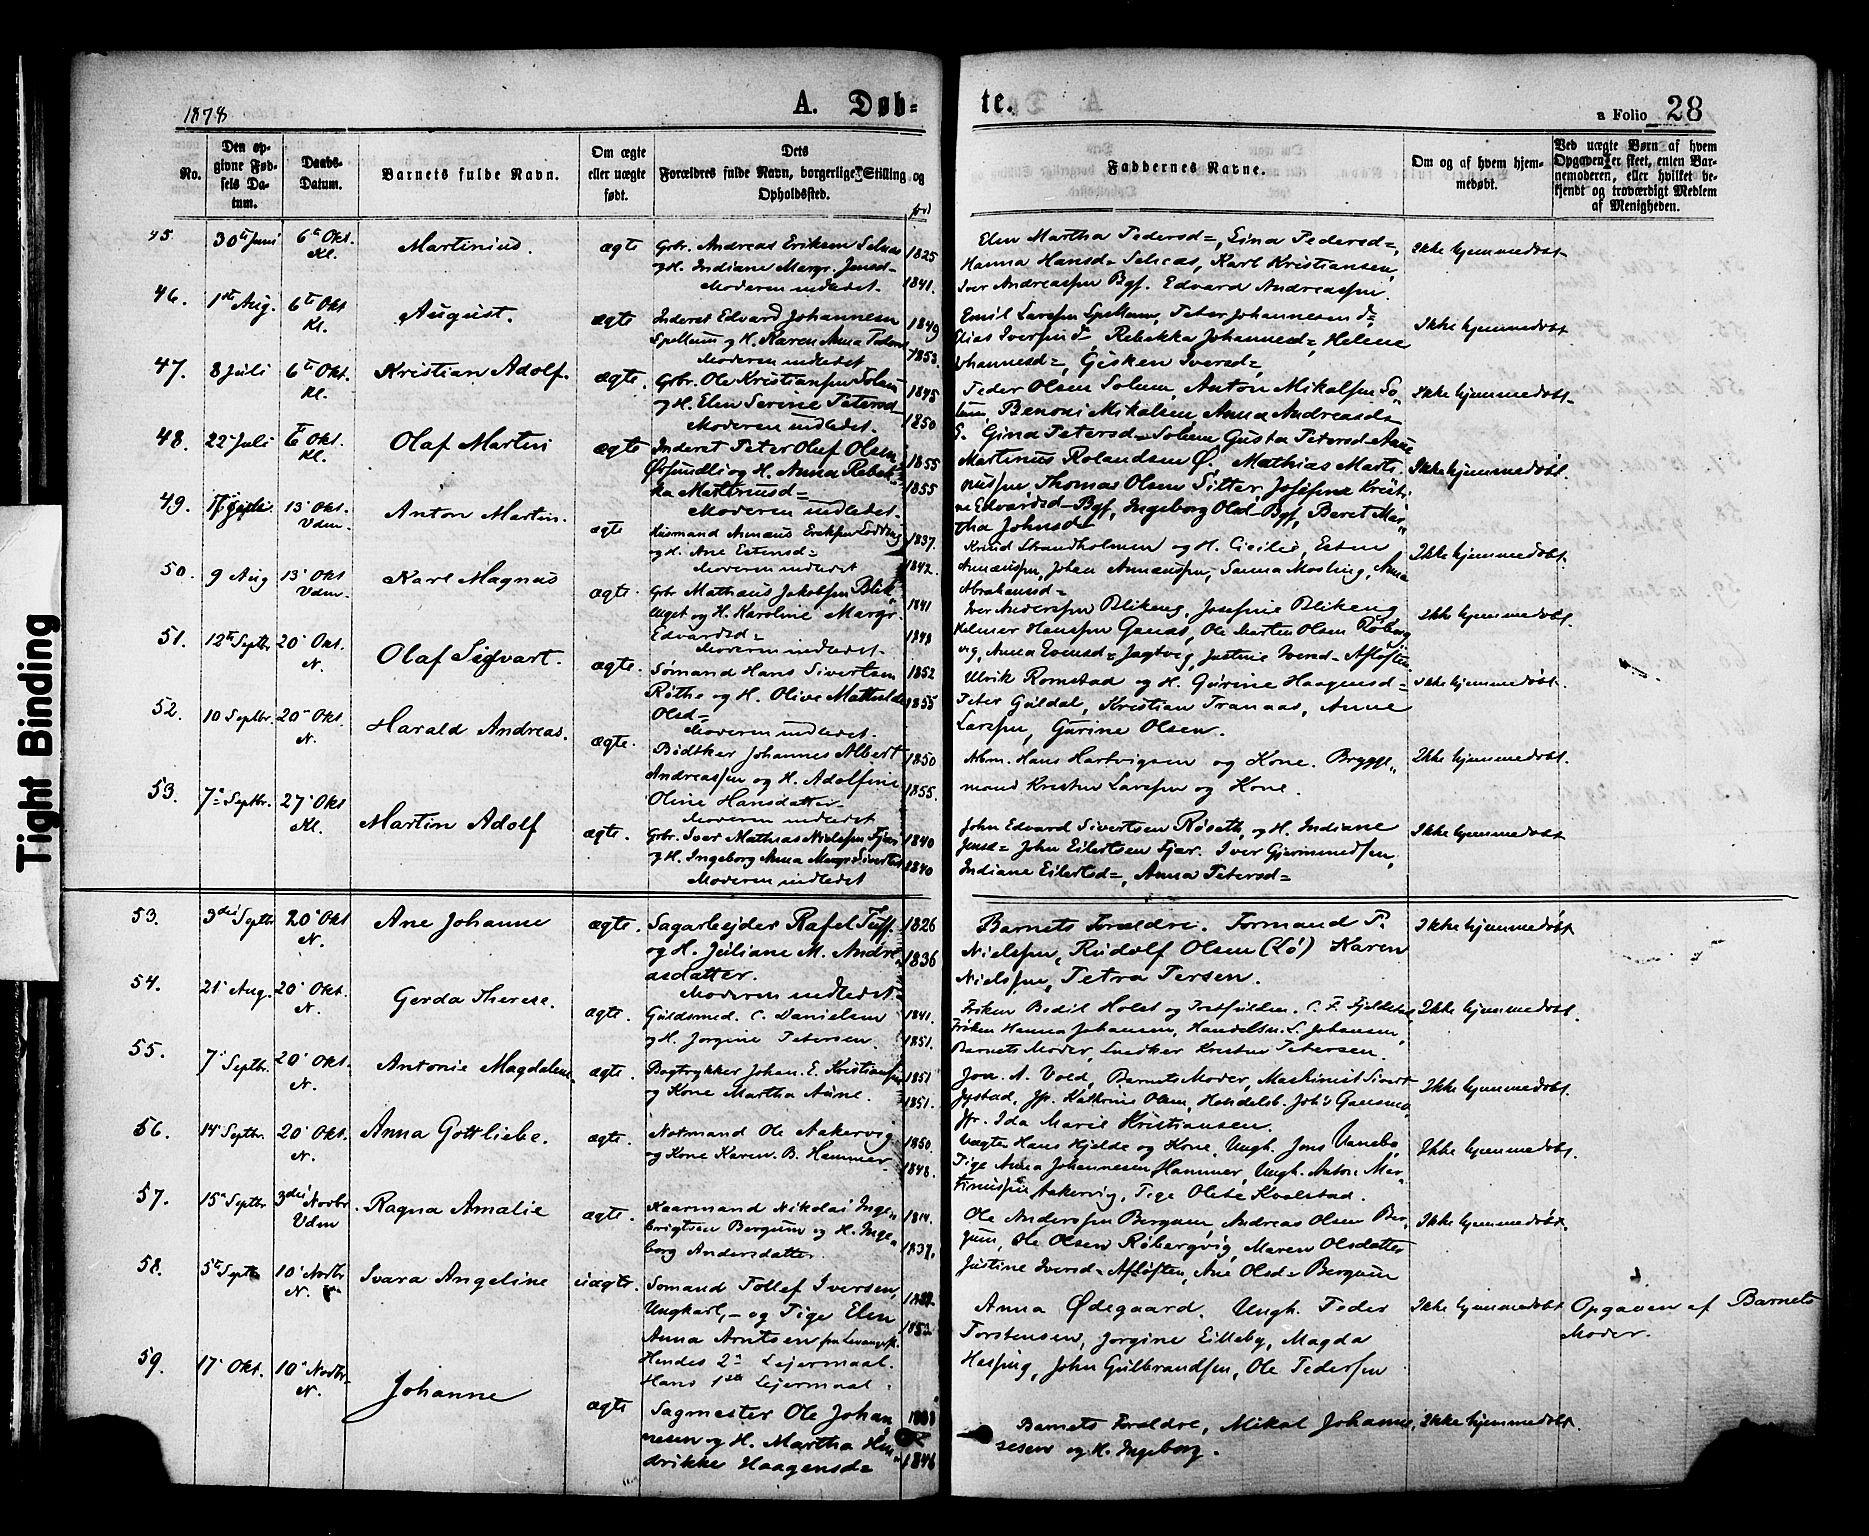 1878
A. Døb-
te.
a Folio 28
No.
Den op-
givne Fød-
sels Da-
tum.
Daabs-
Datum.
Barnets fulde Navn.
Om ægte
eller uægte
født.
Dets
Forældres fulde Navn, borgerlige Stilling og
Opholdssted.
Faddernes Navne.
Om og af hvem hjem-
medøbt.
Ved uægte Børn af hvem
Opgaven er skeet, enten Bar-
nemoderen, eller hvilket be-
kjendt og troværdigt Medlem
af Menigheden.
45. 30te Juni 6te Okt. Kl. Martinius. ægte
Grbr. Andreas Eriksen Selnæs 1825
og H. Indiane Margr. Jensd=
Moderen indledet. 1841.
Elen Martha Pedersd=, Gina Pedersd=,
Hanna Hansd= Selnæs, Karl Kristiansen,
Iver Andreassen Bgf. Edvard Andreassen.
Ikke hjemmedøbt
46. 1ste Aug. 6te Okt Kl. August. ægte
Inderst Edvard Johannesen 1849
Spellum og H. Karen Anna Peders 1853
Moderen indledet
Emil Larssen Spellum, Peter Johannesen
Elias Iversen, Rebekka Johannesd=, Helene
Johannesd=, Gisken Iversd=
Ikke hjemmedøbt
47. 8 Juli 6te Okt. Kl. Kristian Adolf. ægte.
Grbr. Ole Kristianssen Solum 1845
og H. Elen Serine Petersd 1850
Moderen indledet.
Peder Olsen Solum, Anton Mikalsen So-
lum, Benoni Mikalsen, Anna Andreasd=
S. Gina Petersd= Solum Gusta Petersd=
Ikke hjemmedøbt
48. 22 Juli 6te Okt. Kl. Olaf Martin ægte
Inderst Peter Oluf Olsen 1855
og H. Anna Rebek= 1855
ka Martinusd=
Moderen indledet.
Martinus Rolandsen Ø, Mathias Marti-
nussen Thomas Olsen Sitter, Josefine Kristi-
ne Edvardsd= Bgf, Ingeborg Olsd= Bgf, Beret Mar-
tha Johnsd=
Ikke hjemmedøbt
49. 13 Okt. Vdm. Anton Martin. ægte
Husmand Annæus Erikssen 1837.
og H. Ane Estensd=
Moderen indledet 1842.
Knud Strandholmen og H. Cicilie, Esten
Annæussen, Johan Annæussen, Sanna Mosling, Anna
Abrahamsd=
Ikke hjemmedøbt
50. 9 Aug 13 Okt Vdm. Karl Magnus ægte.
Grbr Mathæus Jakobsen Blik- 1841
enget og H. Karoline Margr.
Edvardsd= 1848
Moderen indledet.
Iver Anderssen Blikeng, Josefine Blikeng
Helmer Hanssen Ganæs, Ole Martin Olsen Røberg
vig, Anna Evensd= Jagtvig, Justine Iversd= Afløften
Ikke hjemmedøbt.
51. 12te Septbr. 20 Okt. N. Olaf Sigvart. ægte.
Sømand Hans Sivertsen 1852
Røthe og H. Olive Mathilde 1855
Olsd=
Moderen indledet.
Ulrik Romstad og H. Gurine Haagensd=
Peter Guldal, Kristian Tranaas, Anne
Larssen, Gurine Olsen.
Ikke hjemmedøbt.
52. 10 Septbr. 20 Okt. N. Harald Andreas. ægte.
Bødtker Johannes Albert 1850
Andreassen og H. Adolfine
Oline Hansdatter 1855.
Moderen indledet
Arbm. Hans Hartvigsen og Kone. Brygge-
mand Kristen Larssen og Kone.
Ikke hjemmedøbt.
53. 7 Septbr. 27 Okt Kl. Martin Adolf ægte.
Grbr. Iver Mathias Nielssen Fjær 1840
og H. Ingeborg Anna Margr. Sivertsd 1840
Moderen indledet
John Edvard Sivertsen Røseth, og H. Indiane
Jensd= John Eilertsen Fjær. Iver Gjermundsen,
Indiane Eilertsd=, Anna Petersd=
Ikke hjemmedøbt
53. 3die Septbr 20 Okt N. Ane Johanne ægte.
Sagarbejder Rafel Tuff. 1826
og H. Juliane M. Andre- 1836
asdatter.
Moderen indledet
Barnets Forældre. Formand P.
Nielssen, Rudolf Olsen (Lø) Karen
Nielssen, Petra Persen.
Ikke hjemmedøbt
54. 21 Aug. 20 Okt. N. Gerda Therese. ægte.
Guldsmed. C. Danielsen 1841.
og H. Jorgine Petersen. 1851.
Frøken Bodil Holst og Postfuldm. C. F. Fjeldstad,
Frøken Hanna Johansen, Handelsm. L. Johansen,
Barnets Moder, Snedker Kristen Petersen.
Ikke hjemmedøbt.
55. 7 Septbr. 20 Okt. N. Antonie Magdalene ægte.
Bogtrykker Johan. E. Kristiansen 1851
og Kone Martha Aune. 1851.
Jon. A. Vold, Barnets Moder, Maskinist Sivert
Jystad, Jfr. Kathrine Olsen, Handelsb. Johs Gausmo,
Jfr. Ida Marie Kristiansen.
Ikke hjemmedøbt.
56. 14 Septbr. 20 Okt. N. Anna Gottliebe. ægte.
Notmand Ole Aakervig 1850.
og Kone Karen. B. Hammer. 1848.
Vægter Hans Hjelde og Kone, Ungk. Jens Vannebo,
Pige Anna Johannesen Hammer, Ungk. Anton Mar-
tinussen Aakervig, Pige Olete Kvalstad.
Ikke hjemmedøbt.
57. 15 Septbr 3die Novbr Vdm Ragna Amalie ægte.
Kaarmand Nikolai Inge- 1814.
brigtsen Bergum og H. Inge-
borg Andersdatter. 1837.
Ole Anderssen Bergum, Andreas Olsen Ber-
gum, Ole Olsen Røbergvig, Maren Olsdatter
Justine Iversd= Afløften, Ane Olsd= Bergum
Ikke hjemmedøbt.
58. 5te Septb 10 Novbr N. Svara Angeline uægte.
Sømand Tollef Iversen,
Ungkarl, - og Pige Elen 1852
Anna Arntsen fra Levanger.
Hendes 2det Lejermaal.
Hans 1ste Lejermaal.
Anna Ødegaard. Ungk. Peder
Torstensen, Jorgine Eilleby, Magda
Hesping, John Gulbrandsen, Ole Pedersen
Ikke hjemmedøbt
Opgaven af Barnets
Moder.
59. 17 Okt. 10 Novbr N. Johanne ægte
Sagmester Ole Johan-
nesen og H. Martha Hen-
drikke Haagensd= 1846
Barnets Forældre, Mikal Johanne-
sesen og H. Ingeborg.
Ikke hjemmedøbt.
Tight Binding